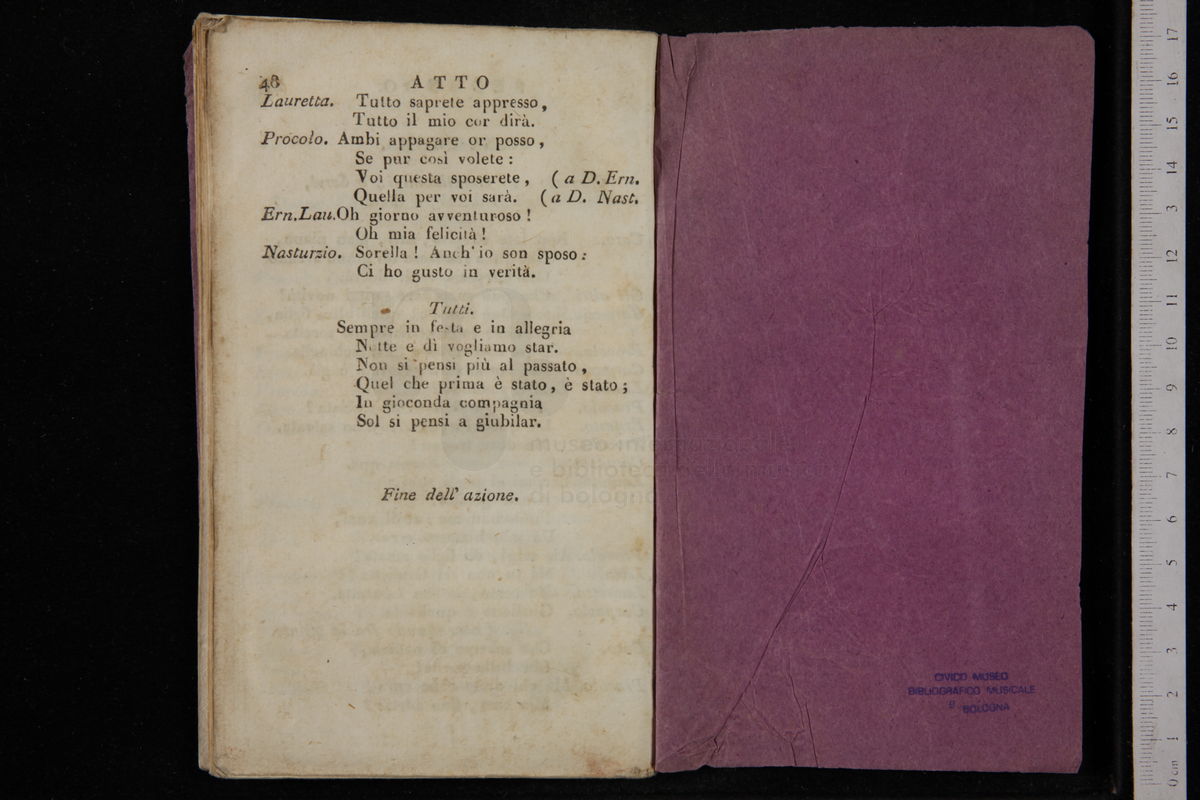 48 ATTO
Lauretta. Tutto saprete appresso,
Tutto il mio cor dirà.
Procolo. Ambi appagare or posso,
Se pur così volete :
Voi questa sposerete, ( a D. Ern.
Quella per voi sarà. ( a D. Nast.
Ern.Lau.Oh giorno avventuroso !
Oh mia felicità !
Nasturzio. Sorella ! Anch' io son sposo :
Ci ho gusto in verità.
Tutti.
Sempre in festa e in allegria
Notte e dì vogliamo star.
Non si pensi più al passato,
Quel che prima è stato, è stato ;
In gioconda compagnia
Sol si pensi a giubilar.
Fine dell' azione.
museo in
e bibliote
di bologna
CIVICO MUSEO
BIBLIOGRAFICO MUSICALE
BOLOGNA
17
16
15
14
3
12
11
10
9
8
7
6
5
4
3
2
1
0 cm